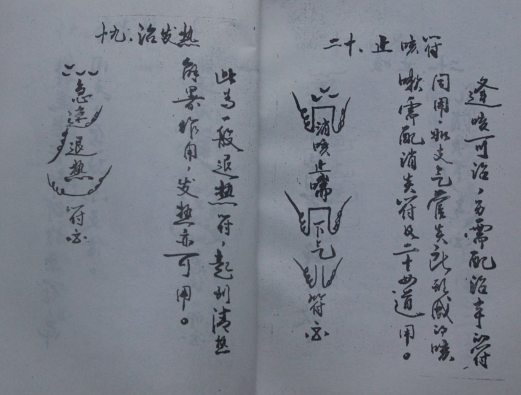 十九、治发热
此为一般退热符，起到清热
解暑作用，发热亦可用。
急速退热
符
二十、止咳符
逢咳可治，另需配治本符
同用，如支气管炎所形成的咳
嗽需配消炎符及二十四道用。
消咳止嗽
下气
符